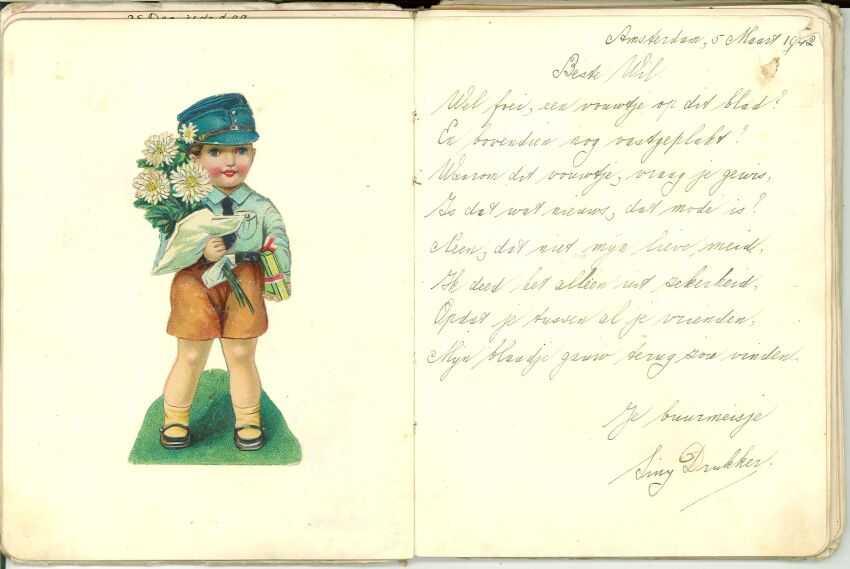 Amsterdam, 5 Maart 1942
Beste Wil
Wel foei, een vouwtje op dit blad?
En bovendien nog vastgeplakt?
Waarom dit vouwtje, vraag je gewis,
Is dat wat nieuws, dat mode is?
Neen, dat niet mijn lieve meid.
Ik deed het alleen uit zekerheid.
Opdat je tussen al je vrienden,
Mijn blaadje gauw terug zou vinden.
Je buurmeisje
Siny Drukker.